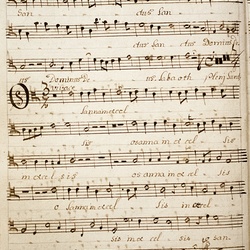 San ctus San
ctus San ctus Dominus
us Dominus De us Sabaoth Pleni sunt
Vivace
osanna in excel
sis osanna in excel sis
in excel sis osanna in excel sis
o sanna in excel sis in excel
sis in excel sis o san